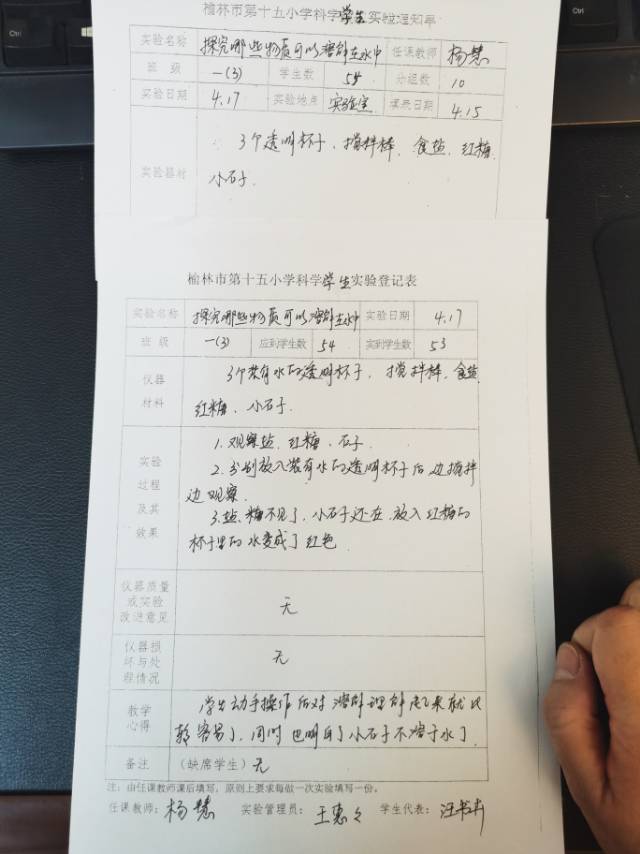 榆林市第十五小学科学学生实验通知单
实验名称 探究哪些物质可以溶解在水中 任课教师 杨慧
班 级 一(3) 学生数 54 分组数 10
实验日期 4.17 实验地点 实验室 填表日期 4.15
实验器材 3个透明杯子、搅拌棒、食盐、红糖、
小石子.
榆林市第十五小学科学学生实验登记表
实验名称 探究哪些物质可以溶解在水中 实验日期 4.17
班 级 一(3) 应到学生数 54 实到学生数 53
仪器 3个装有水的透明杯子、搅拌棒、食盐
材料 红糖、小石子.
1.观察盐、红糖、石子.
实验 2.分别放入装有水的透明杯子后边搅拌
过程 边观察.
及其 3.盐、糖不见了,小石子还在,放入红糖的
效果 杯子里的水变成了红色
仪器质量
或实验
改进意见 无
仪器损
坏与处
理情况 无
教学 学生动手操作后对溶解理解起来就比
心得 较容易了,同时也明白了小石子不溶于水了.
备注 (缺席学生) 无
注:由任课教师课后填写,原则上要求每做一次实验填写一份。
任课教师:杨慧 实验管理员:王惠 学生代表: